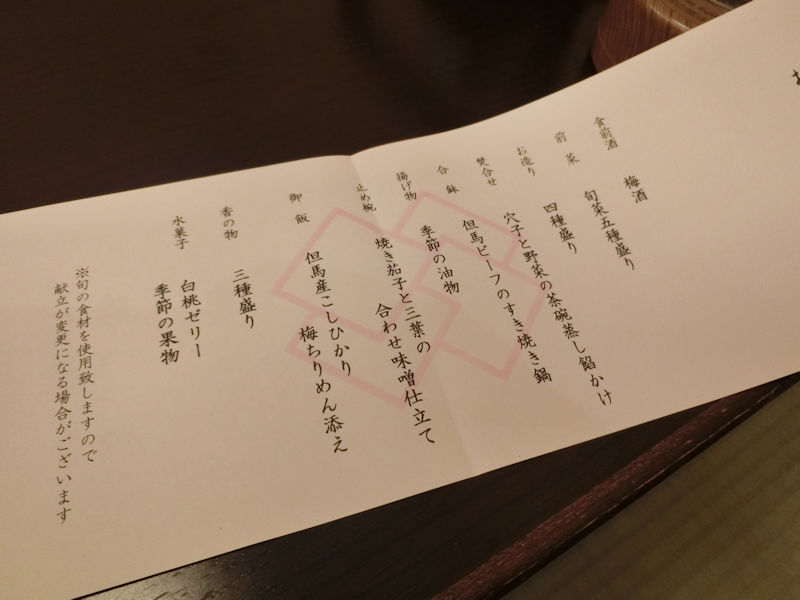 お
食前酒
梅酒
前菜
旬菜五種盛り
お造り
四種盛り
焚合せ
穴子と野菜の茶碗蒸し餡かけ
合鉢
但馬ビーフのすき焼き鍋
揚げ物
季節の油物
止め椀
焼き茄子と三葉の
合わせ味噌仕立て
御飯
但馬産こしひかり
梅ちりめん添え
香の物
三種盛り
水菓子
白桃ゼリー
季節の果物
※旬の食材を使用致しますので
献立が変更になる場合がございます